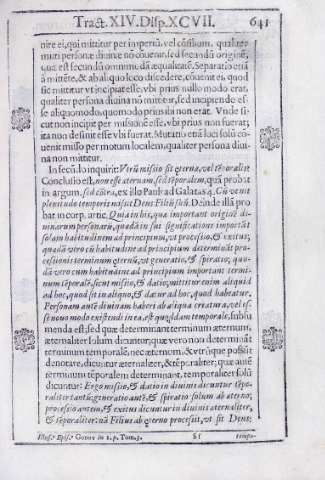 Tract. XIV. Disp. XCVII. 641
nire ei, qui mittitur per imperiū, vel cōsilium, qualiter
uni personæ diuinæ nō conuenit, sed secundū originē,
quæ est secundū omnimodā æqualitatē. Separatio etiā
à mittēte, & ab aliquo loco discedere, cōuenit ei, quod
sic mittitur vt incipiat esse, vbi prius nullo modo erat,
qualiter persona diuina nō mittitur, sed incipiendo es-
se aliquo modo, quo modo prius ibi non erat. Vnde si-
cut non incipit per missionē esse, vbi prius non fuerat;
ita non desinit esse vbi fuerat. Mutatio etiā loci solū cō-
uenit misso per motum localem, qualiter persona diui
na non mittitur.
In secūdo inquirit: Vtrū missio sit æterna, vel tēporalis?
Conclusio est, non esse æternam, sed tēporalem, quā probat
in argum. sed cōtra, ex illo Pauli ad Galatas 4. Cū venit
plenitudo temporis misit Deus Filiū suū. Deinde illā pro
bat in corp. artic. Quia in his, quæ important originē di-
uinarum personarū, quædā in sui significatione important
solam habitudinem ad principium, vt processio, & exitus;
quædā verò cū habitudine ad principium determināt pro-
cessionis terminum æternū, vt generatio, & spiratio; quæ-
dā verò cum habitudine ad principium important termi-
num tēporalē, sicut missio, & datio; mittitur enim aliquid
ad hoc, quod sit in aliquo, & datur ad hoc, quod habeatur.
Personam autē diuinam haberi ab aliqua creatura, vel es-
se nouo modo existendi in ea, est quiddam temporale, subsu
menda est; sed quæ determinant terminum æternum,
æternaliter solum dicuntur; quæ vero non determinant
terminum temporalē, nec æternum, & vtrūque possūt
denotare, dicuntur æternaliter, & tēporaliter; quæ autē
terminum tēporalem determinant, temporaliter solū
dicuntur: Ergo missio, & datio in diuinis dicuntur tēpo-
raliter tantū; generatio autē, & spiratio solum ab æterno;
processio autem, & exitus dicuntur in diuinis æternaliter,
& tēporaliter: nā Filius ab æterno processit, vt sit Deus;
Illus. Epis. Godoy in 1. p. Tom. 3. Sſ tempo-